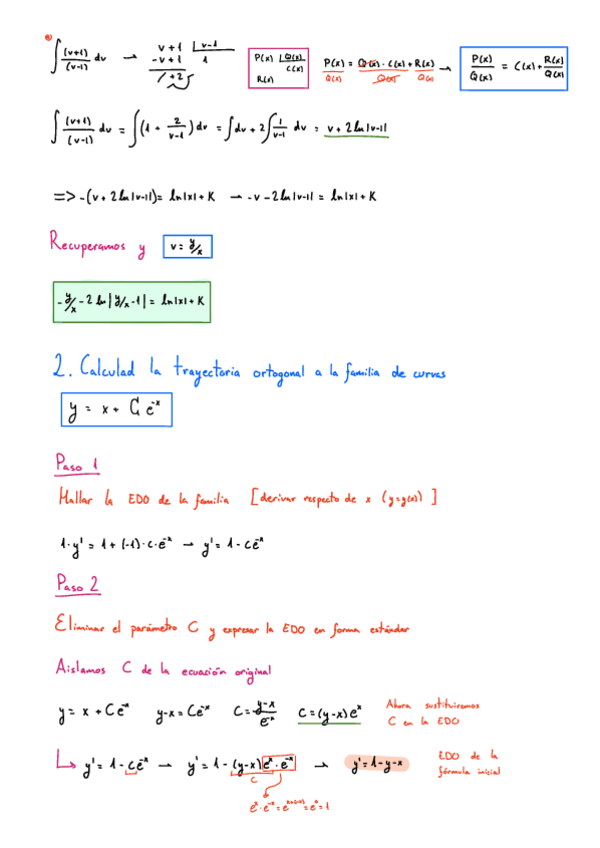 ∫ (v+1)/(v-1) dv → v+1 | v-1
-v+1 1
/ +2
P(x) | Q(x)
C(x)
R(x)
P(x)/Q(x) = Q(x)·C(x)/Q(x) + R(x)/Q(x) → P(x)/Q(x) = C(x) + R(x)/Q(x)
∫ (v+1)/(v-1) dv = ∫(1 + 2/(v-1)) dv = ∫dv + 2∫ 1/(v-1) dv = v + 2 ln|v-1|
=> -(v + 2 ln|v-1|) = ln|x| + K → -v - 2 ln|v-1| = ln|x| + K
Recuperamos y v = y/x
-y/x - 2 ln|y/x - 1| = ln|x| + K
2. Calculad la trayectoria ortogonal a la familia de curvas
y = x + C e^-x
Paso 1
Hallar la EDO de la familia [derivar respecto de x (y=y(x)) ]
1·y' = 1 + (-1)·c·e^-x → y' = 1 - ce^-x
Paso 2
Eliminar el parámetro C y expresar la EDO en forma estándar
Aislamos C de la ecuación original
y = x + Ce^-x y-x = Ce^-x C = (y-x)/e^-x C = (y-x)e^x Ahora sustituiremos
C en la EDO
y' = 1 - ce^-x → y' = 1 - (y-x)e^x·e^-x → y' = 1-y-x EDO de la
fórmula inicial
C
e^x·e^-x = e^(x+(-x)) = e^0 = 1